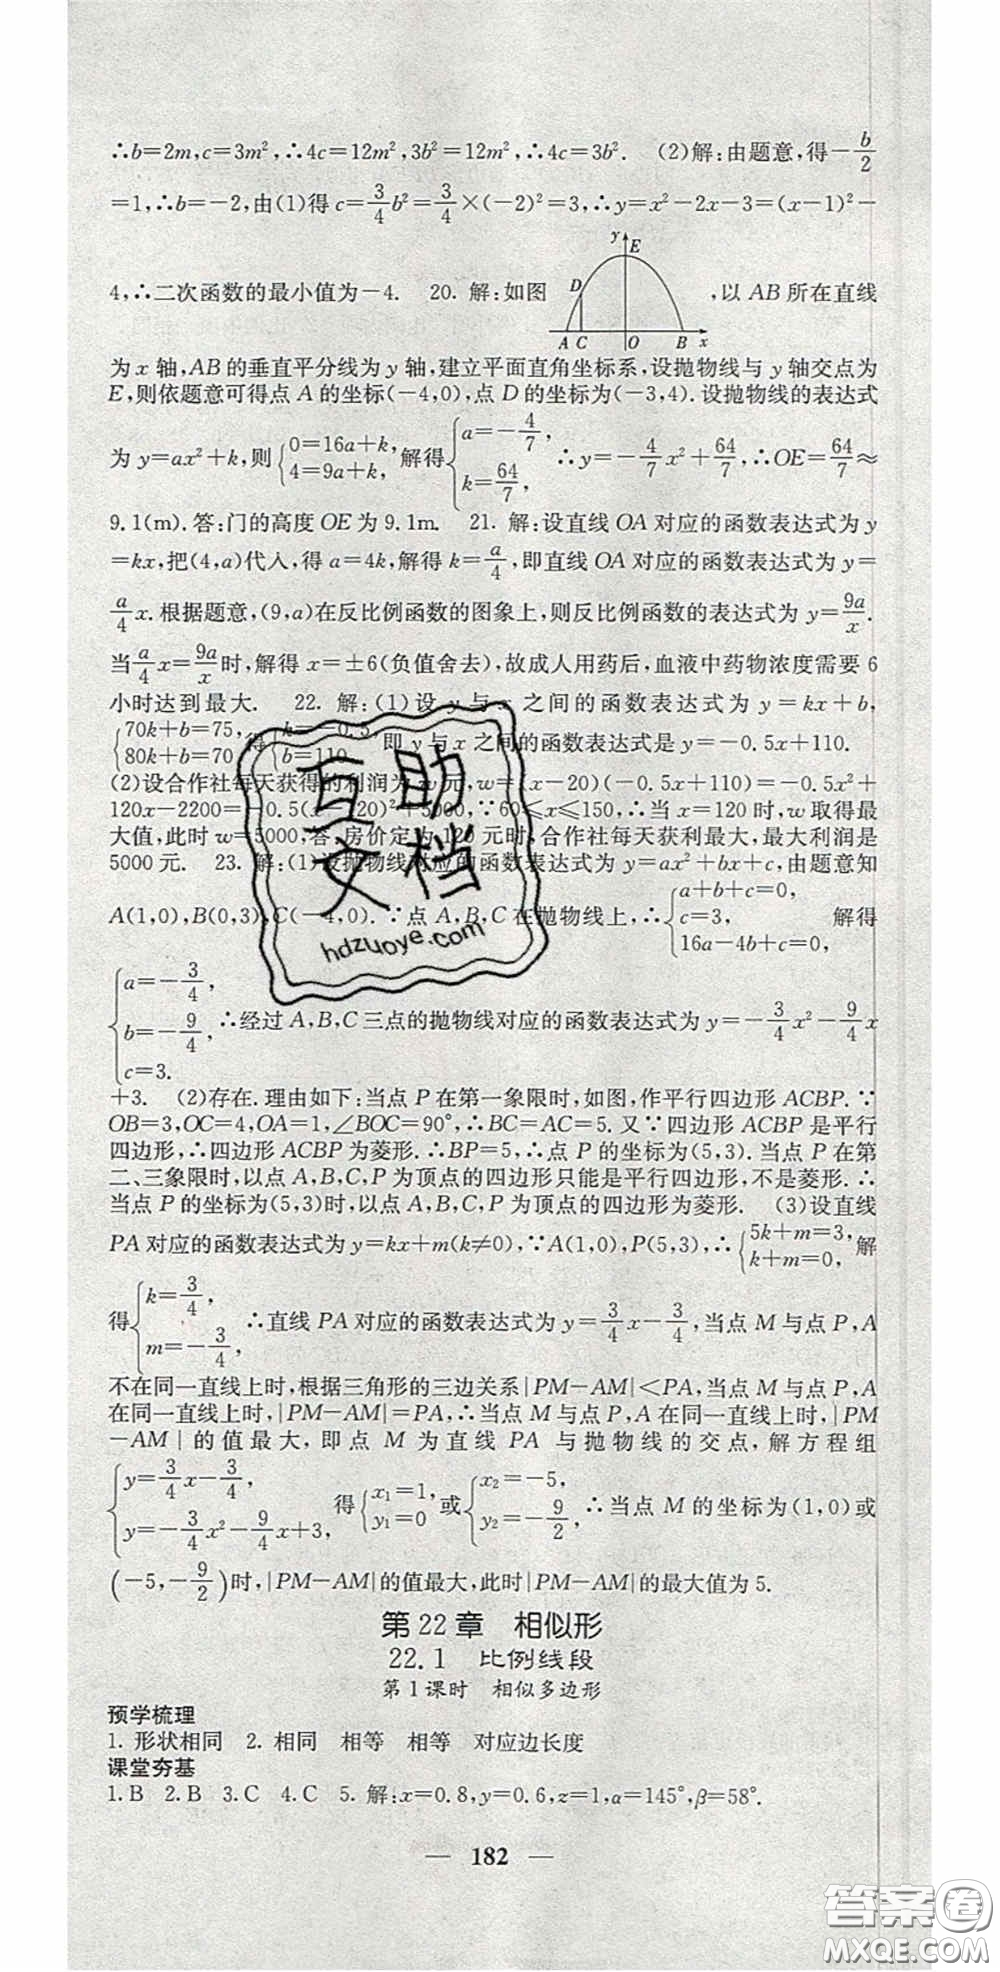 ∴b=2m,c=3m²,∴4c=12m²,3b²=12m²,∴4c=3b². (2)解:由题意,得−b/2
=1,∴b=−2,由(1)得 c=3/4b²=3/4×(−2)²=3,∴y=x²−2x−3=(x−1)²−
y E D A C O B x
4,∴二次函数的最小值为−4. 20. 解:如图 ,以 AB 所在直线
为 x 轴,AB 的垂直平分线为 y 轴,建立平面直角坐标系,设抛物线与 y 轴交点为
E,则依题意可得点 A 的坐标(−4,0),点 D 的坐标为(−3,4).设抛物线的表达式
为 y=ax²+k,则{0=16a+k, 4=9a+k, 解得{a=−4/7, k=64/7, ∴y=−4/7x²+64/7,∴OE=64/7≈
9.1(m).答:门的高度 OE 为 9.1m. 21. 解:设直线 OA 对应的函数表达式为 y
=kx,把(4,a)代入,得 a=4k,解得 k=a/4,即直线 OA 对应的函数表达式为 y=
a/4x.根据题意,(9,a)在反比例函数的图象上,则反比例函数的表达式为 y=9a/x.
当a/4x=9a/x时,解得 x=±6(负值舍去),故成人用药后,血液中药物浓度需要 6
小时达到最大. 22. 解:(1)设 y 与 x 之间的函数表达式为 y=kx+b,
{70k+b=75, 80k+b=70, 得{k=−0.5, b=110, 即 y 与 x 之间的函数表达式是 y=−0.5x+110.
(2)设合作社每天获得的利润为 w 元,w=(x−20)(−0.5x+110)=−0.5x²+
120x−2200=−0.5(x−120)²+5000,∵60≤x≤150,∴当 x=120 时,w 取得最
大值,此时 w=5000,答:房价定为 120 元时,合作社每天获利最大,最大利润是
5000 元. 23. 解:(1)设抛物线对应的函数表达式为 y=ax²+bx+c,由题意知
A(1,0),B(0,3),C(−4,0).∵点 A,B,C 在抛物线上,∴{a+b+c=0, c=3, 16a−4b+c=0, 解得
{a=−3/4, b=−9/4, c=3. ∴经过 A,B,C 三点的抛物线对应的函数表达式为 y=−3/4x²−9/4x
+3. (2)存在.理由如下:当点 P 在第一象限时,如图,作平行四边形 ACBP.∵
OB=3,OC=4,OA=1,∠BOC=90°,∴BC=AC=5.又∵四边形 ACBP 是平行
四边形,∴四边形 ACBP 为菱形.∴BP=5,∴点 P 的坐标为(5,3).当点 P 在第
二、三象限时,以点 A,B,C,P 为顶点的四边形只能是平行四边形,不是菱形.∴
当点 P 的坐标为(5,3)时,以点 A,B,C,P 为顶点的四边形为菱形. (3)设直线
PA 对应的函数表达式为 y=kx+m(k≠0),∵A(1,0),P(5,3),∴{5k+m=3, k+m=0, 解
得{k=3/4, m=−3/4, ∴直线 PA 对应的函数表达式为 y=3/4x−3/4,当点 M 与点 P,A
不在同一直线上时,根据三角形的三边关系|PM−AM|<PA,当点 M 与点 P,A
在同一直线上时,|PM−AM|=PA,∴当点 M 与点 P,A 在同一直线上时,|PM
−AM|的值最大,即点 M 为直线 PA 与抛物线的交点,解方程组
{y=3/4x−3/4, y=−3/4x²−9/4x+3, 得{x₁=1, y₁=0 或{x₂=−5, y₂=−9/2, ∴当点 M 的坐标为(1,0)或
(−5,−9/2)时,|PM−AM|的值最大,此时|PM−AM|的最大值为 5.
第 22 章 相似形
22.1 比例线段
第 1 课时 相似多边形
预学梳理
1. 形状相同 2. 相同 相等 相等 对应边长度
课堂夯基
1. B 2. B 3. C 4. C 5. 解:x=0.8,y=0.6,z=1,α=145°,β=58°.
— 182 —
互助
文档
hdzuoye.com
答案圈
MXQE.COM